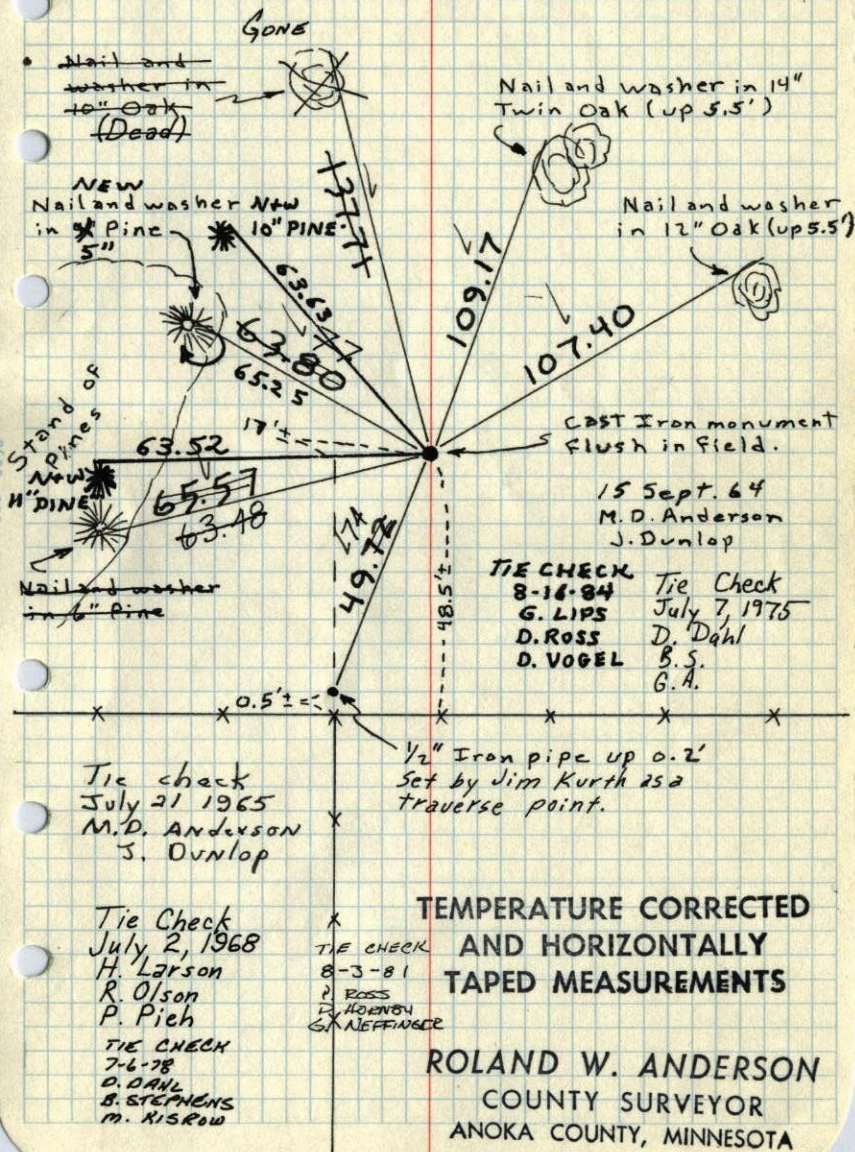 GONE
Nail and
washer in
10" Oak
(Dead)
Nail and washer in 14"
Twin Oak (up 5.5')
NEW
Nail and washer
in Pine
5"
N+W
10" PINE
Nail and washer
in 12" Oak (up 5.5')
137.71
109.17
107.40
63.63
77
63.80
65.25
Stand of
Pines
17'±
63.52
N+W
11" PINE
65.57
63.48
Nail and washer
in 6" Pine
Cast Iron monument
flush in field.
15 Sept. 64
M.D. Anderson
J. Dunlop
.74
49.72
48.5'±
TIE CHECK
8-16-84
G. LIPS
D. ROSS
D. VOGEL
Tie Check
July 7, 1975
D. Dahl
B.S.
G.A.
0.5'±
1/2" Iron pipe up 0.2'
Set by Jim Kurth as a
traverse point.
Tie check
July 21 1965
M.D. Anderson
J. Dunlop
Tie Check
July 2, 1968
H. Larson
R. Olson
P. Pieh
TIE CHECK
7-6-78
D. DAHL
B. STEPHENS
M. KISROW
TIE CHECK
8-3-81
ROSS
D. HORNBY
G. NEFFINGER
TEMPERATURE CORRECTED
AND HORIZONTALLY
TAPED MEASUREMENTS
ROLAND W. ANDERSON
COUNTY SURVEYOR
ANOKA COUNTY, MINNESOTA